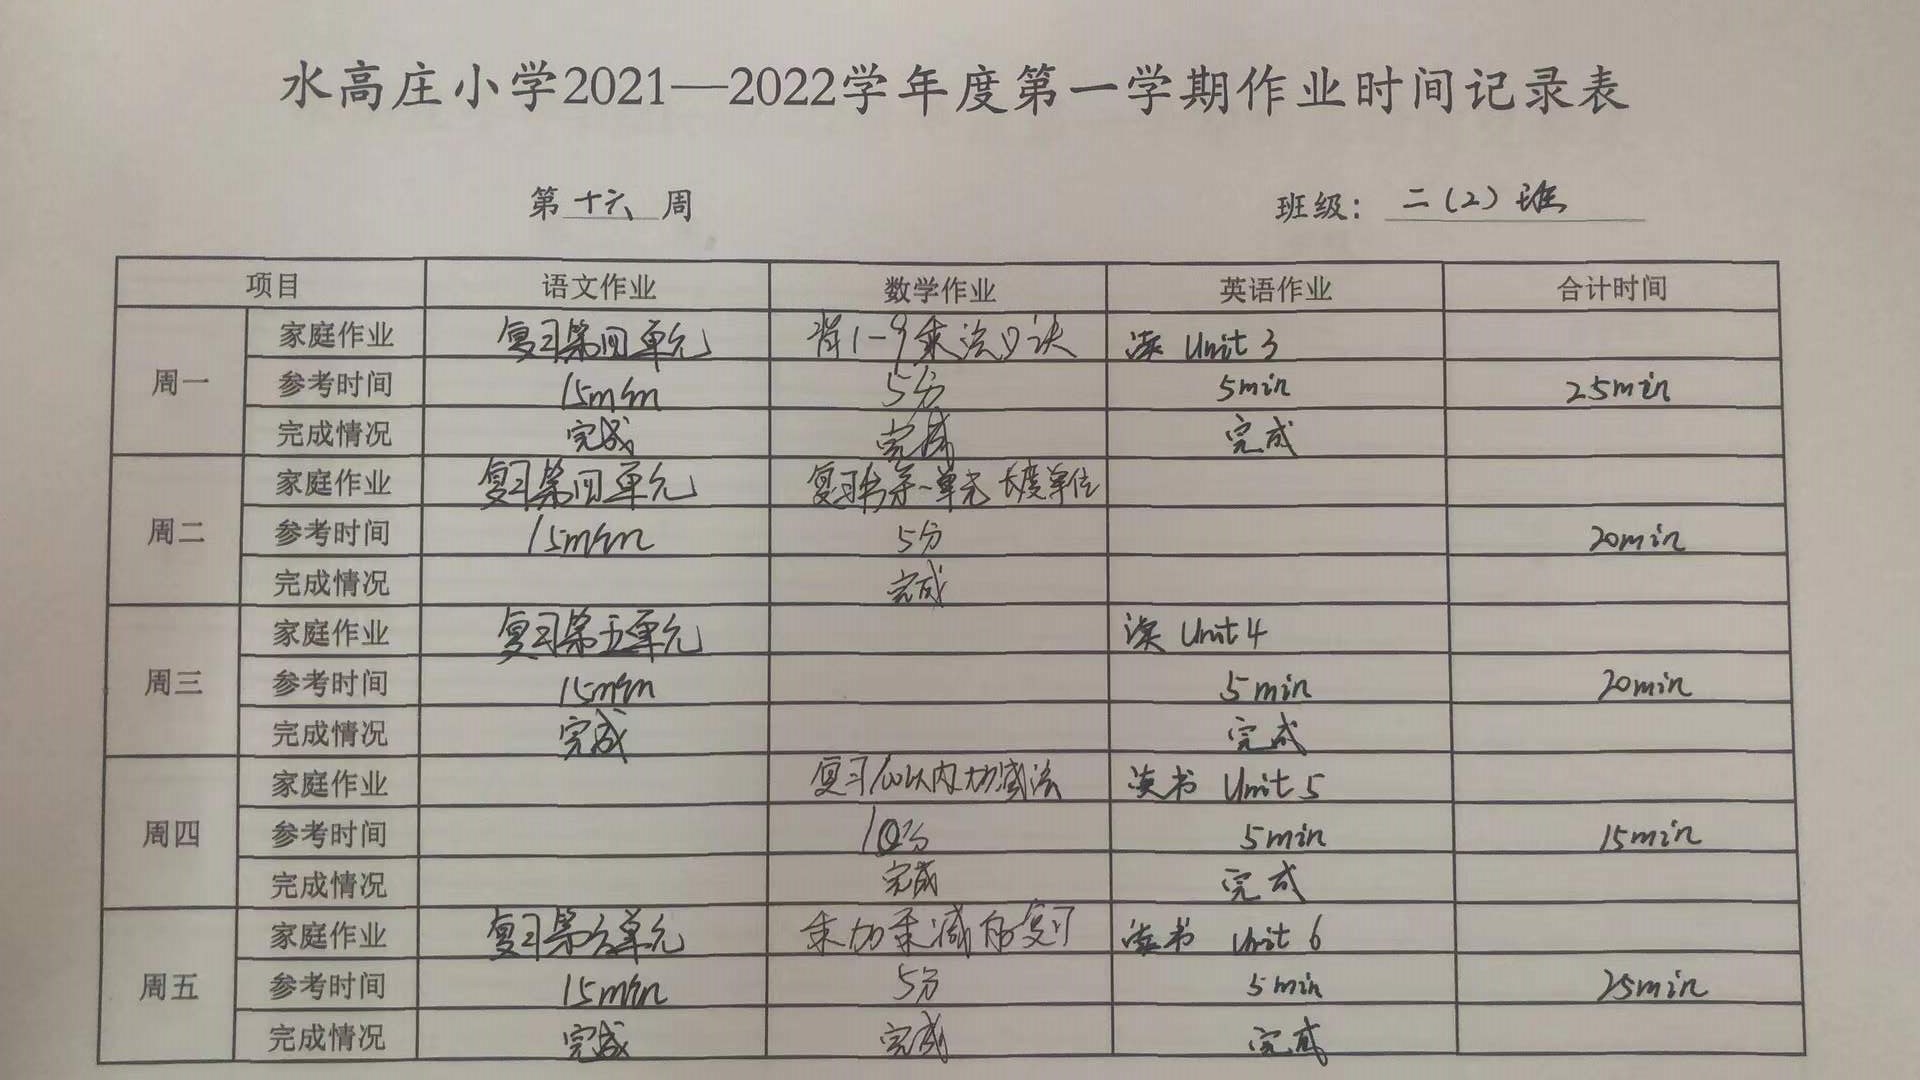 水高庄小学2021—2022学年度第一学期作业时间记录表
第 十六 周 班级： 二（2）班
项目 语文作业 数学作业 英语作业 合计时间
周一 家庭作业 复习第四单元 背1-9乘法口诀 读 Unit 3
参考时间 15min 5分 5min 25min
完成情况 完成 完成 完成
周二 家庭作业 复习第四单元 复习书第一单元 长度单位
参考时间 15min 5分 20min
完成情况 完成
周三 家庭作业 复习第五单元 读 Unit 4
参考时间 15min 5min 20min
完成情况 完成 完成
周四 家庭作业 复习100以内加减法 读书 Unit 5
参考时间 10分 5min 15min
完成情况 完成 完成
周五 家庭作业 复习第六单元 乘加乘减的复习 读书 Unit 6
参考时间 15min 5分 5min 25min
完成情况 完成 完成 完成